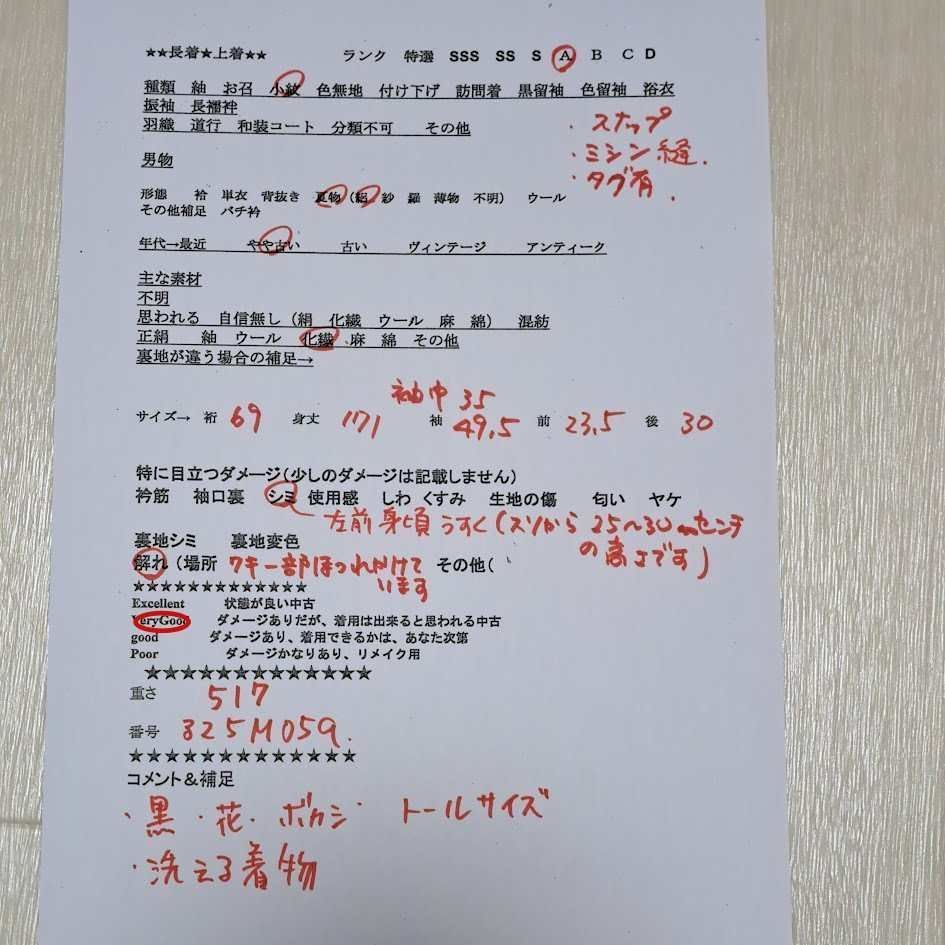 ★★長着★上着★★　ランク　特選　SSS　SS　S　A　B　C　D
種類　紬　お召　小紋　色無地　付け下げ　訪問着　黒留袖　色留袖　浴衣
振袖　長襦袢
羽織　道行　和装コート　分類不可　その他
・スナップ
・ミシン縫.
・タグ有.
男物
形態　袷　単衣　背抜き　夏物（絽　紗　羅　薄物　不明）　ウール
その他補足　バチ衿
年代→最近　やや古い　古い　ヴィンテージ　アンティーク
主な素材
不明
思われる　自信無し（絹　化繊　ウール　麻　綿）　混紡
正絹　紬　ウール　化繊　麻　綿　その他
裏地が違う場合の補足→
袖巾 35
サイズ→　裄　69　身丈　171　袖　49.5　前　23.5　後　30
特に目立つダメージ（少しのダメージは記載しません）
衿筋　袖口裏　シミ　使用感　しわ　くすみ　生地の傷　匂い　ヤケ
左前身頃うすく（スソから25〜30センチ
の高さです）
裏地シミ　裏地変色
解れ（場所　ワキ一部ほつれかけて
います
その他（
★★★★★★★★★★★★
Excellent　状態が良い中古
VeryGood　ダメージありだが、着用は出来ると思われる中古
good　ダメージあり、着用できるかは、あなた次第
Poor　ダメージかなりあり、リメイク用
★★★★★★★★★★★★
重さ　517
番号　325M059.
★★★★★★★★★★★★
コメント＆補足
・黒・花・ボカシ　トールサイズ
・洗える着物